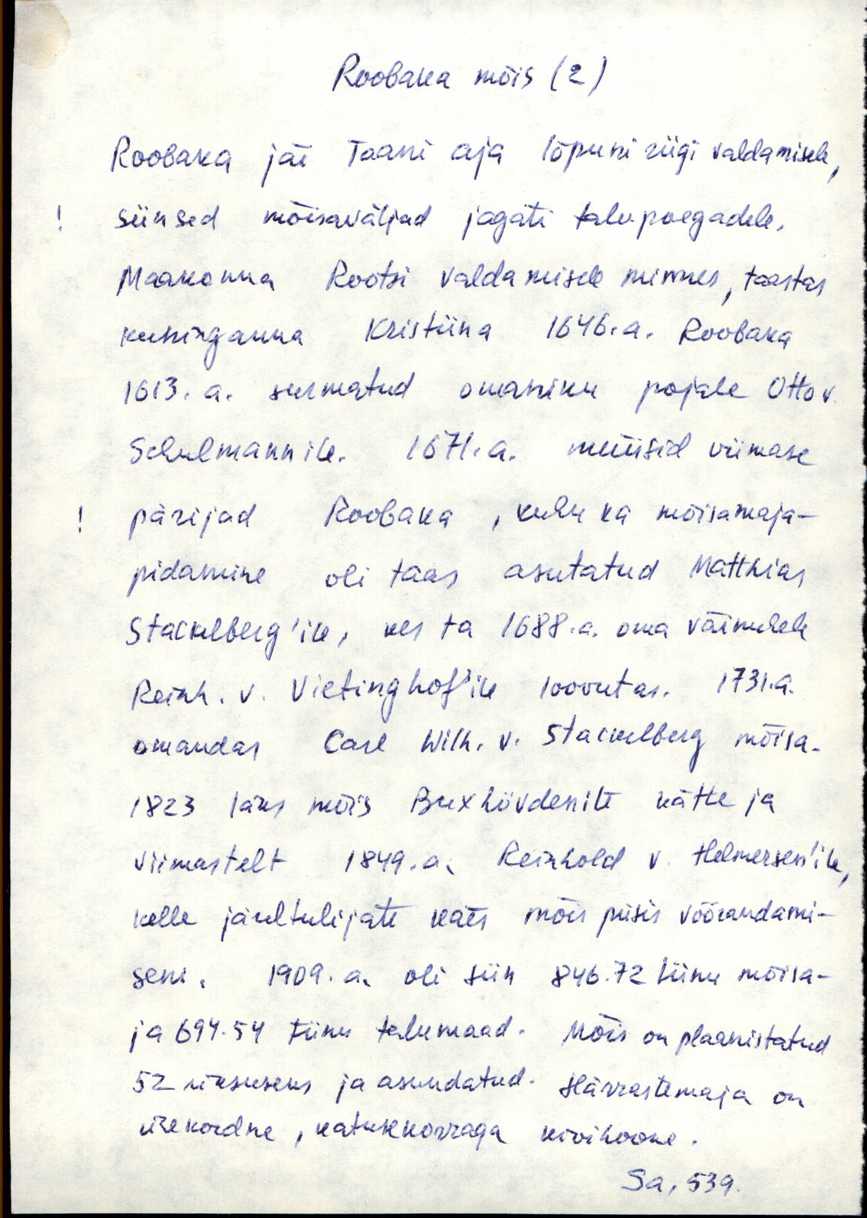 Roobaka mõis (2)
Roobaka jäi Taani aja lõpuni riigi valdamisele,
! siinsed mõisaväljad jagati talupoegadele.
Maakonna Rootsi valdamisele minnes, taastas
kuninganna Kristiina 1646.a. Roobaka
1613.a. surmatud omaniku pojale Otto v.
Schulmannile. 1671.a. müüsid viimase
! pärijad Roobaka, kuhu ka mõisamaja-
pidamine oli taas asutatud Matthias
Stackelberg'ile, kes ta 1688.a. oma väimehele
Reinh. v. Vietinghof'ile loovutas. 1731.a.
omandas Carl Wilh. v. Stackelberg mõisa.
1823 läks mõis Buxhövdenite kätte ja
viimastelt 1849.a. Reinhold v. Helmersen'ile,
kelle järeltulijate käes mõis püsis võõrandami-
seni. 1909.a. oli siin 846.72 tiinu mõisa-
ja 694.54 tiinu talumaad. Mõis on plaanistatud
52 üksuseks ja asundatud. Härrastemaja on
ühekordne, katusekorraga kivihoone.
Sa, 539.